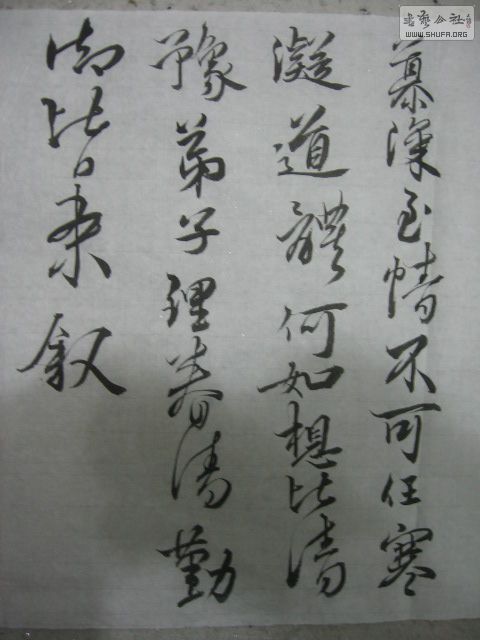 慕深至情不可任寒
凝道體何如想比清
豫弟子理眷清勤
御比日來叙
書藝公社
WWW.SHUFA.ORG